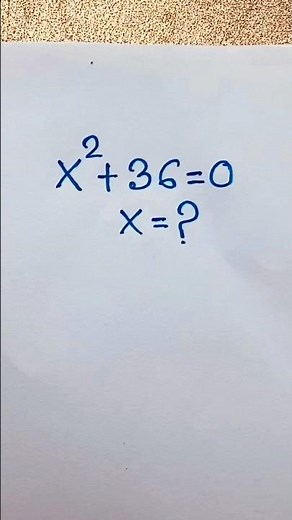 x²+36=0
x=?